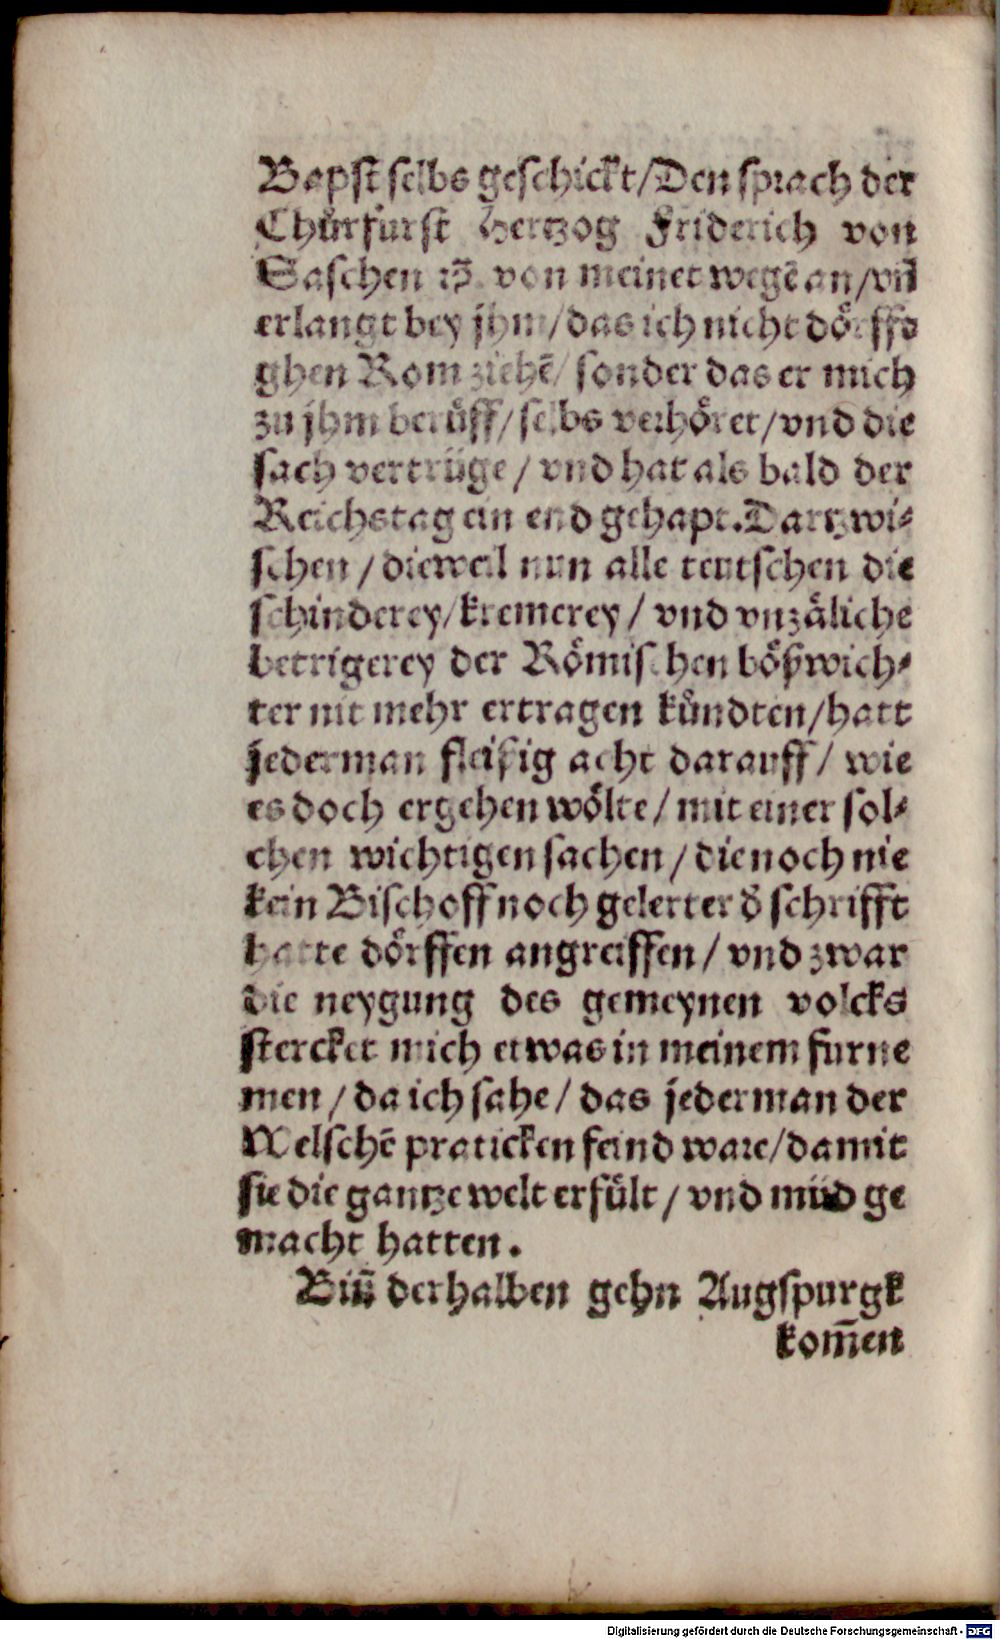 Bapst selbs geschickt/Den sprach der
Chůrfurst Hertzog Friderich von
Saschen ⁊c̄. von meinet wegē an/vñ
erlangt bey jhm/das ich nicht dörffe
ghen Rom ziehē/ sonder das er mich
zu jhm berůff/selbs verhöret/vnd die
sach vertrüge/ vnd hat als bald der
Reichstag ein end gehapt. Dartzwi⸗
schen/dieweil nun alle teutschen die
schinderey/kremerey/ vnd vnzäliche
betrigerey der Römischen bößwich⸗
ter nit mehr ertragen kůndten/hatt
jederman fleisig acht darauff/ wie
es doch ergehen wölte/ mit einer sol⸗
chen wichtigen sachen/die noch nie
kein Bischoff noch gelerter d̕ schrifft
hatte dörffen angreiffen/ vnd zwar
die neygung des gemeynen volcks
stercket mich etwas in meinem furne
men/da ich sahe/ das jederman der
Welschē praticken feind ware/damit
sie die gantze welt erfůlt/ vnd müd ge
macht hatten.
Biñ derhalben gehn Augspurgk
kom̄en
Digitalisierung gefördert durch die Deutsche Forschungsgemeinschaft - DFG